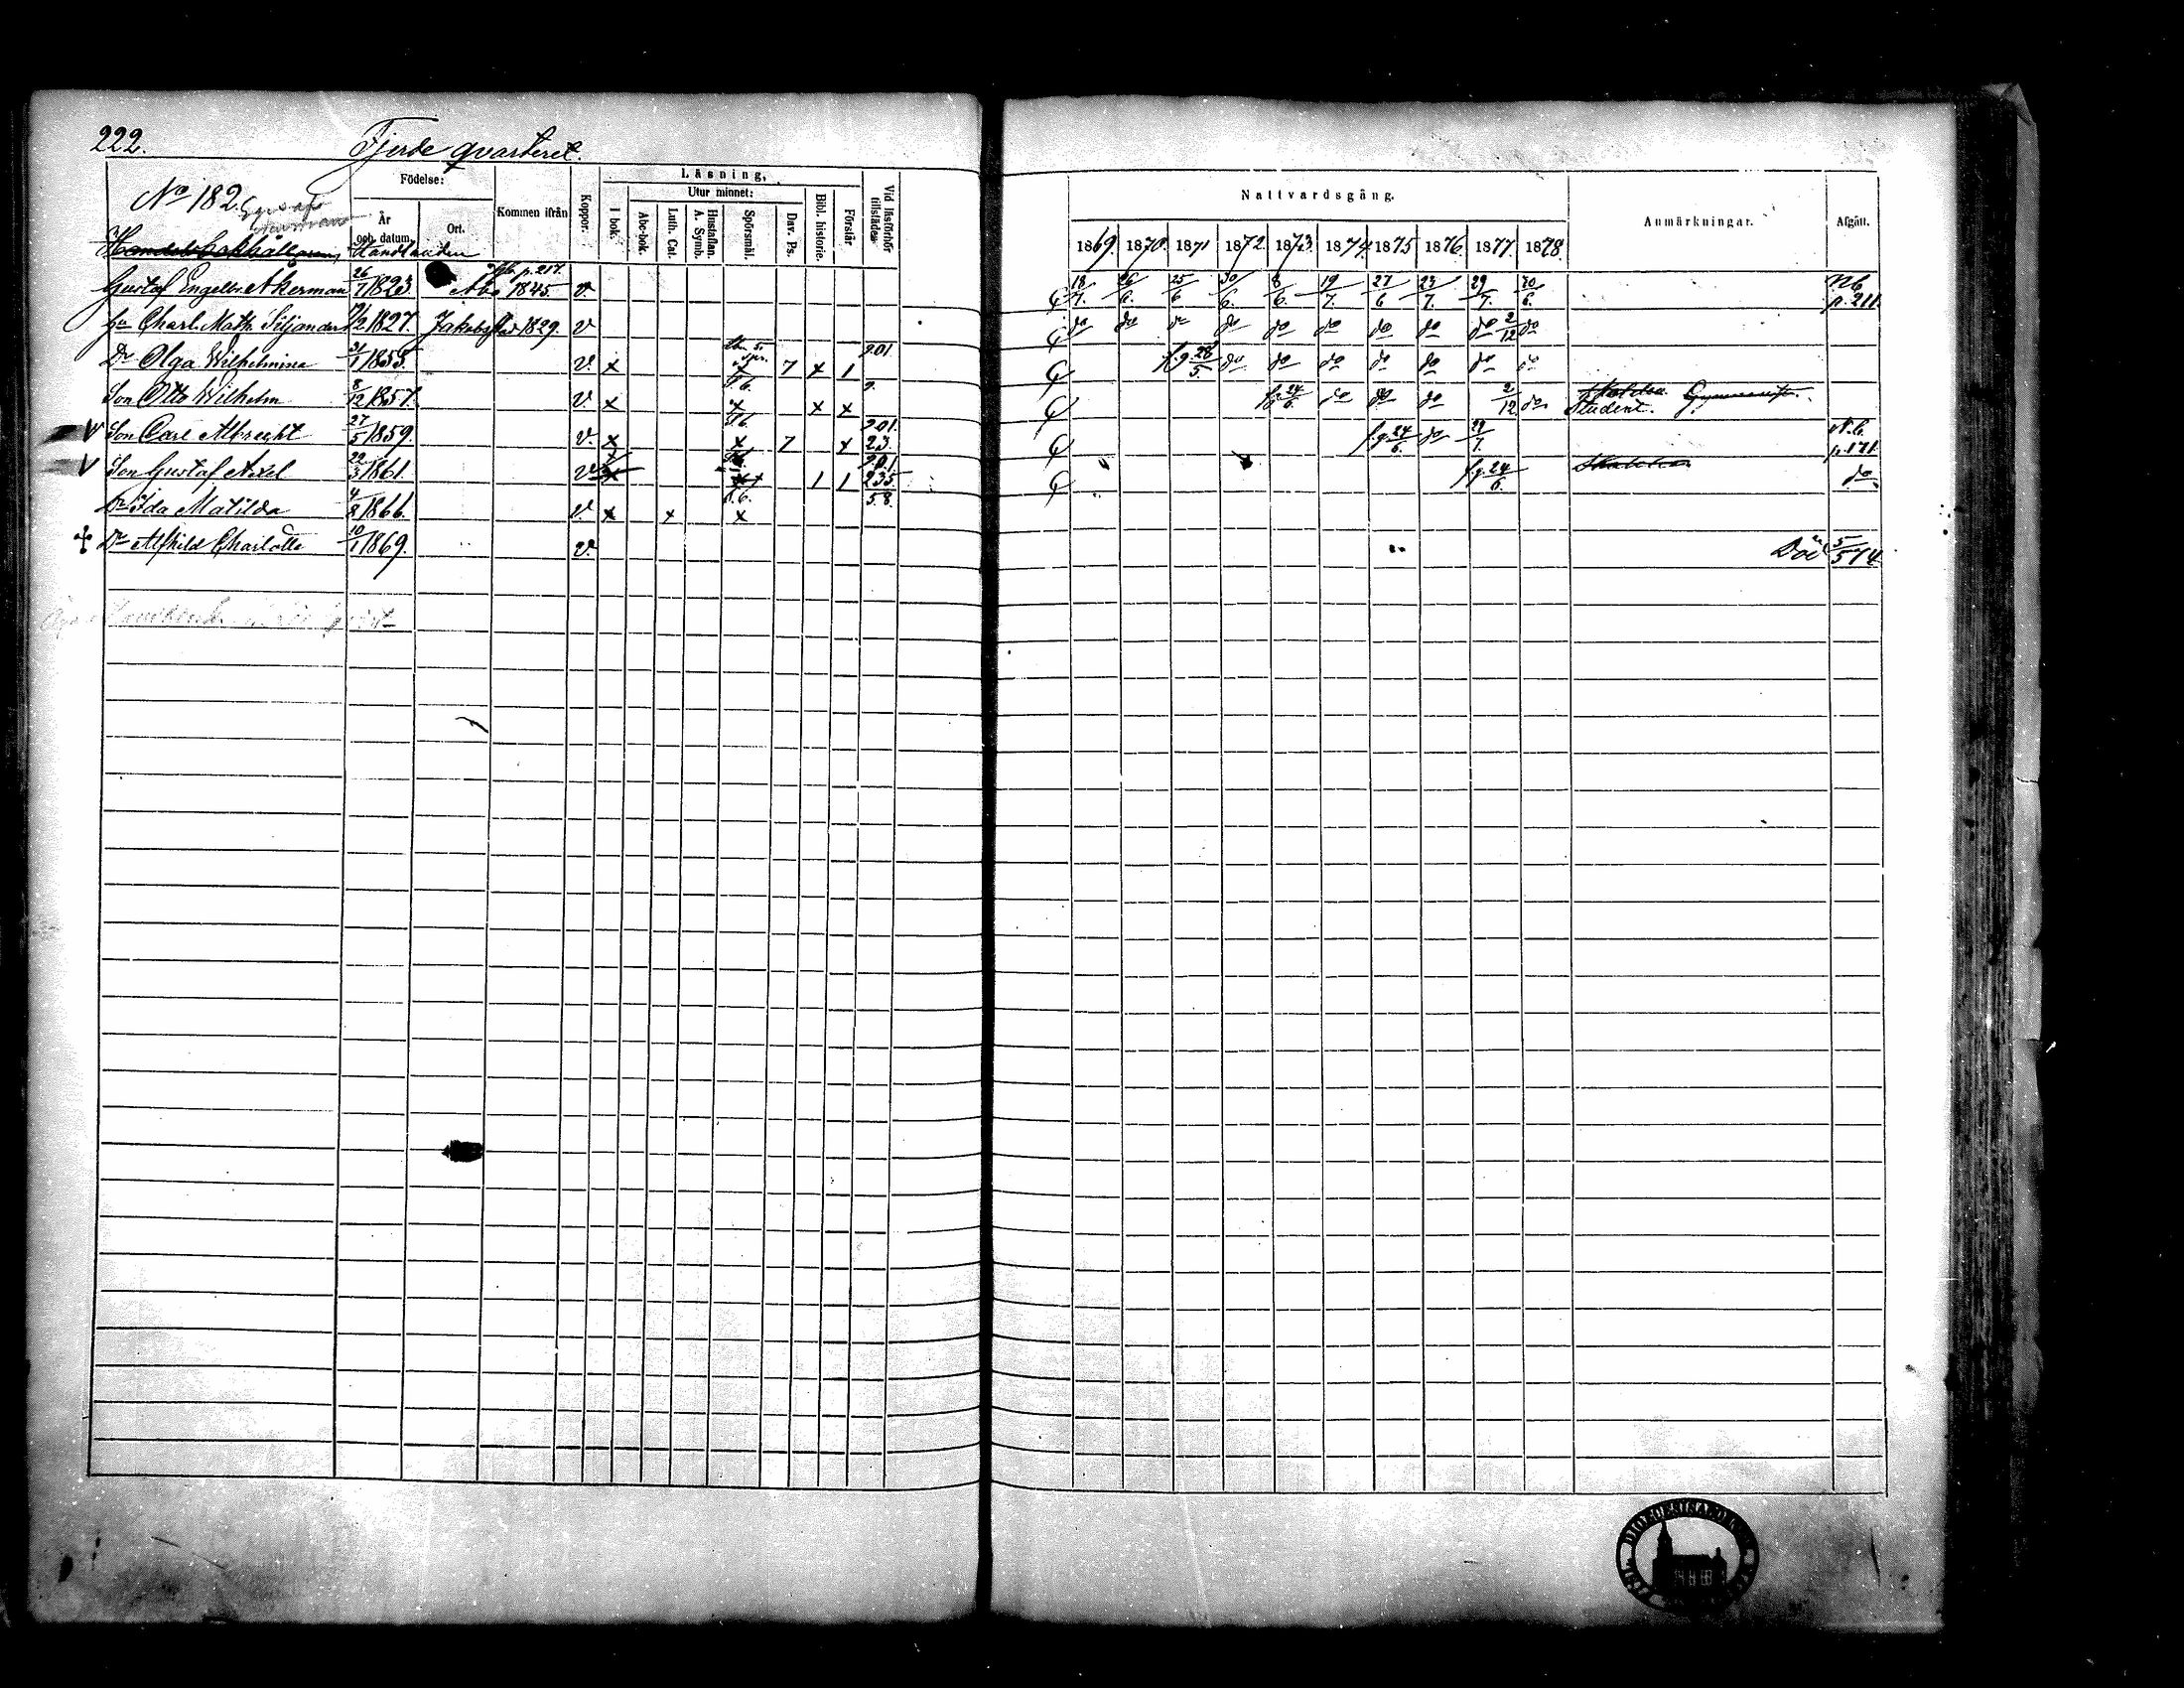 222. Fjerde qvarteret.
No 182. Eges af
Födelse:
År och datum.
Ort.
Kommen ifrån
Koppor.
Läsning.
I bok.
Utur minnet:
Abc-bok.
Luth. Cat.
Hustaflan. A. Symb.
Spörsmål.
Dav. Ps.
Bibl. historie.
Förstår
Vid läsförhör tillstädes
Nattvardsgång.
1869. 1870. 1871 1872. 1873. 1874. 1875 1876. 1877. 1878.
Anmärkningar.
Afgått.
Handelsbokhållaren Handlanden
Gustaf Engelbr. Åkerman 26/7 1823 Åbo p. 217. 1845. v. 18/7. 26/6. 25/6 30/6. 8/6. 19/7. 27/6 23/7. 29/7. 30/6. N.b. p. 211.
Hu Charl. Math. Siljander 1827. Jakobstad 1829. v do do do do do do do do do 2/12 do
Dr Olga Wilhelmina 31/1 1855. v. x x 7 x 1 201 f.g. 28/5. do do do do do do do
Son Otto Wilhelm 8/12 1857. v. x x x x 24/6. do do do 2/12. do Skolelev Gymnasist. Student.
V Son Carl Albrecht 27/5 1859. v. x x 7 x 201. 23. f.g. 24/6. do 29/7. N.b. p. 171
V Son Gustaf Axel 20/3 1861. v x x 1 1 201 235 f.g. 24/6. Skolelev do
Dr Ida Matilda 4/8 1866. v. x x x 58.
+ Dr Alfhild Charlotte 10/1 1869. v. Död 5/5 74